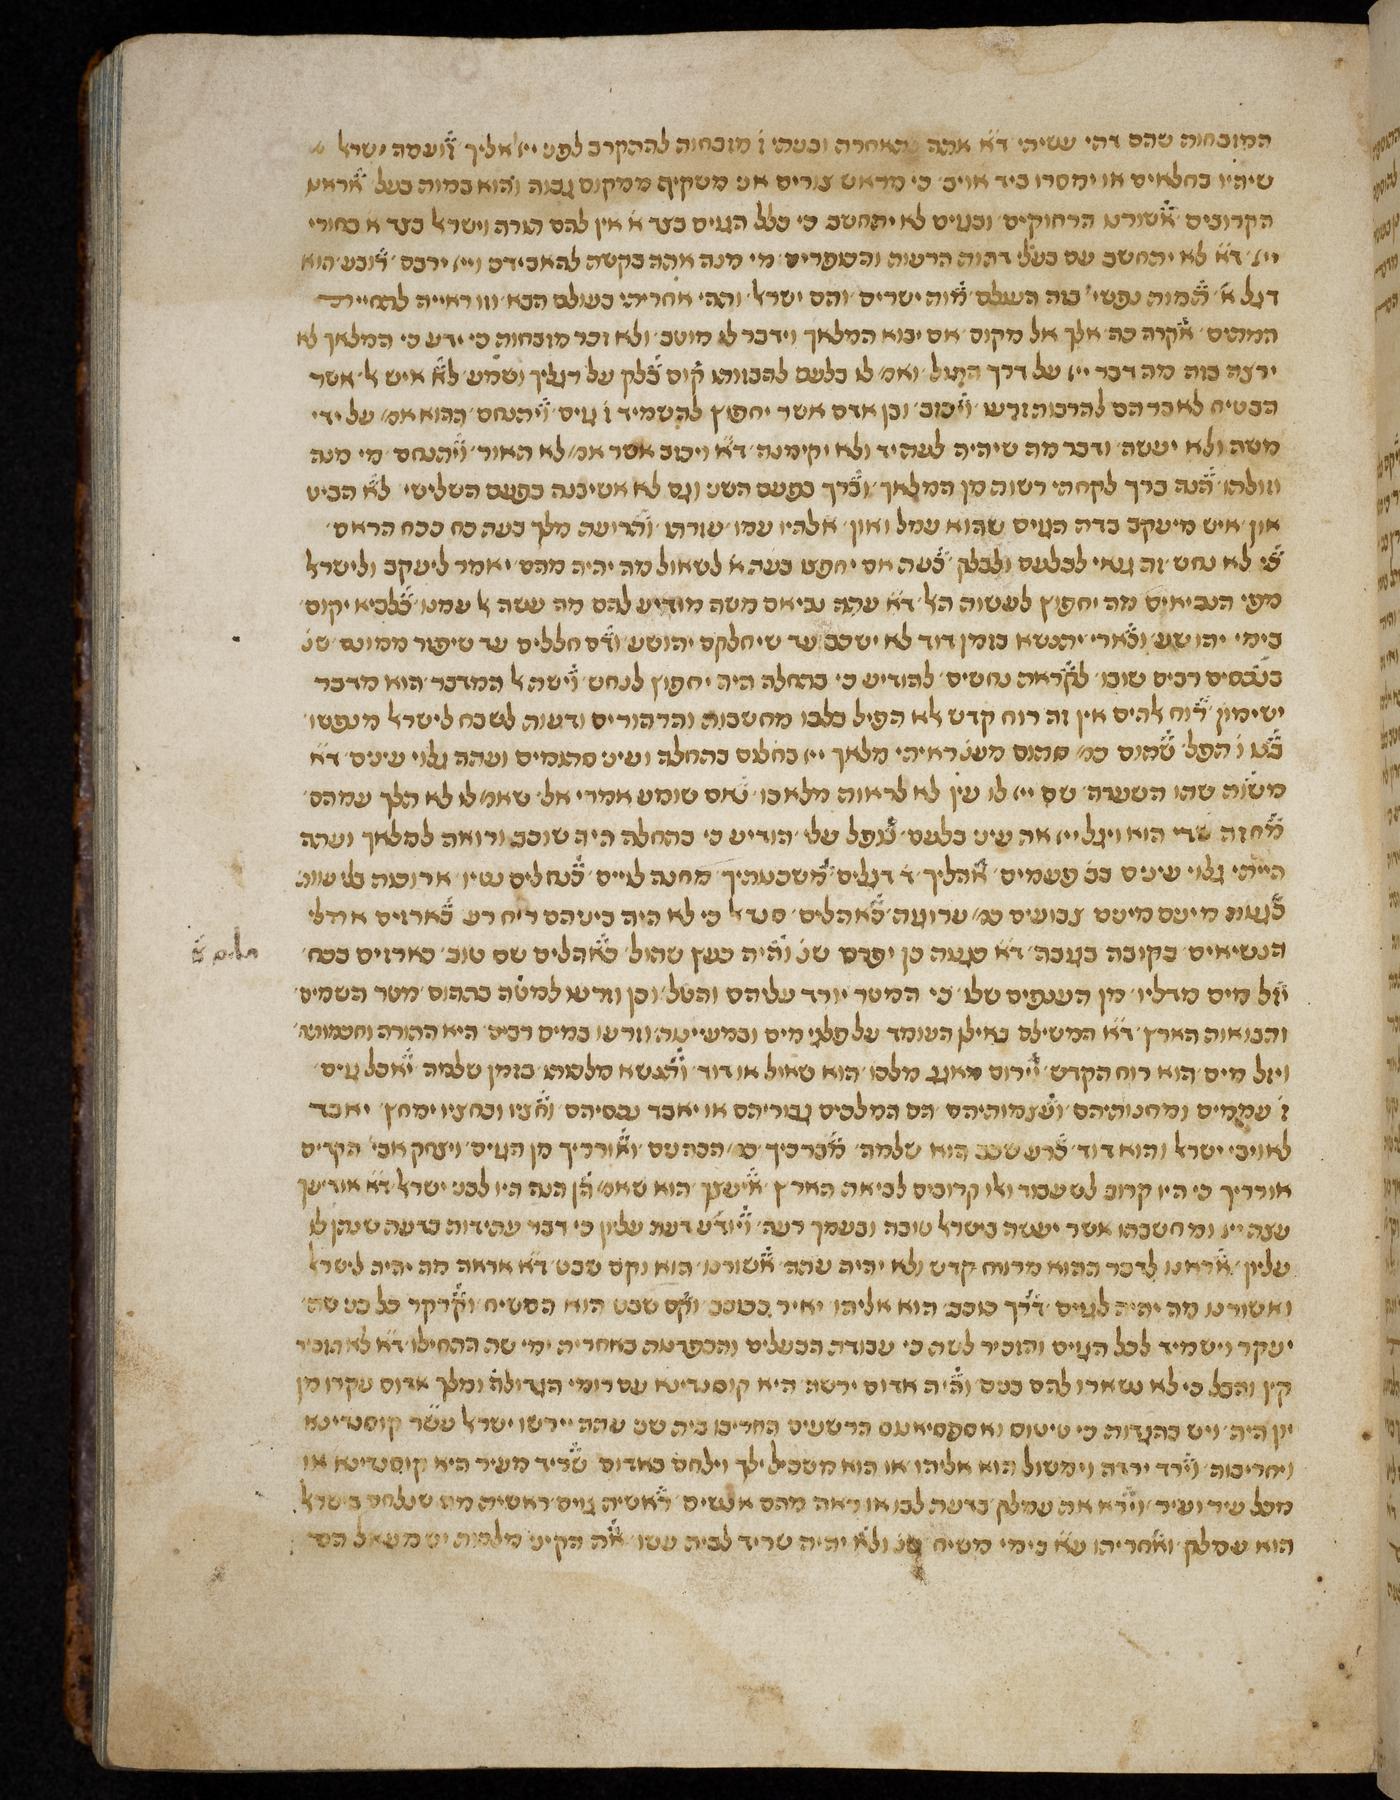 המזבחות שהם דהי עשיתי ד״א אתה האחרת ובעתי ז׳ מזבחות להתקרב לפני ייי אליך וזועמה ישרל
שיהיו בחלאים או ימסרו ביד אויב כי מראש צורים אני משקיף ממקום גבוה והוא במות בעל אראנו
הקרובים אשורנו הרחוקים ובגוים לא יתחשב כי כלל הגוים בצד א׳ אין להם תורה וישרל בצד א׳ בחורי
ייי ד״א לא יתחשב עם בעלי דתות הרעות והכופרים מי מנה אתה בקשת להאבידם וייי ירבם רובע הוא
דגל א׳ תמות נפשי בזה העולם מות ישרים והם ישרל ותהי אחריתי בעולם הבא וזו ראייה לתחיית
המתים אקרה כה אלך אל מקום אם יבוא המלאך וידבר לו מוטב ולא זכר מזבחות כי ידע כי המלאך לא
ירצה בזה מה דבר ייי על דרך התול ואמ׳ לו בלעם להבזותו קום בלק על רגליך ושמע לא איש ל אשר
הבטיח לאברהם להרבות זרעו ויכזב ובן אדם אשר יחפוץ להשמיד ז׳ גוים ויתנחם ההוא אמ׳ על ידי
משה ולא יעשה ודבר מה שיהיה לעתיד ולא יקימנה ד״א ויכזב אשר אמ׳ לא תאור ויתנחם מי מנה
וזולתו הנה ברך לקחתי רשות מן המלאך וברך בפעם השני וגם לא אשיבנה בפעם השלישי לא הביט
און איש מיעקב כדת הגוים שהוא עמל ואון אלהיו עמו עוזרתו ותרועת מלך בעת כח ככח הראם
כי לא נחש זה גנאי לבלעם ולבלק כעת אם יחפצו בעת א׳ לשאול מה יהיה מהם יאמר ליעקב ולישרל
מפי הנביאים מה יחפוץ לעשות הל ד״א עתה נביאם משה מודיע להם מה עשה ל עמנו כלביא יקום
בימי יהושע וכארי יתנשא בזמן דוד לא ישכב עד שיחלקם יהושע ודם חללים עד שיפור ממונם שנ׳
בנכסים רבים שובו לקראת נחשים להודיע כי בתחלה היה יחפוץ לנחש וישת ל המדבר הוא מדבר
ישימון רוח להים אין זה רוח קדש לא הפיל בלבו מחשבות והרהורים ודעות לשבח לישרל מנפשו
בנו ז׳ הפל שתום כמ׳ סתום מענ׳ ראיתי מלאך ייי בחלום בתחלה ועיני סתומים ועתה גלוי עינים ד״א
משוה שתו השערה שם ייי לו עין לא לראות מלאכו נאם שומע אמרי אל שאמ׳ לו לא תלך עמהם
מחזה שדי הוא ויגל ייי את עיני בלעם נופל על הודיע כי בתחלה היה שוכב ורואה למלאך ועתה
הייתי גלוי עינים בב׳ פעמים אהליך ד׳ דגלים משכנותיך מחנה לויים כנחלים נטיו ארוכות בלי שוות
כגנות מיעם מיעם צבועים כמ׳ ערוגת כאהלים סנדל כי לא היה ביניהם ריח רע כארזים אהלי
הנשיאים בקובה בגובה ד״א כגנות כן יפרם שנ׳ והיה כעץ שתול כאהלים שם טוב כארזים בכח
יזל מים מדליו מן הענפים שלו כי המטר יורד עליהם והטל וכן וזרעו למטה בתהום מטר השמים
ותבואות הארץ ד״א המשילם כאילן העומד על פלגי מים ובמעיינות וזרעו במים רבים היא התורה וחכמות
ויזל מים הוא רוח הקדש וירום מאגג מלכו הוא שאול או דוד ותנשא מלכותו בזמן שלמה יאכל גוים
ז׳ עממים ומחנותיהם ועצמותיהם הם המלכים גבוריהם או יאבד נכסיהם וחציו ובחציו ימחץ יאבד
לאויבי ישרל והוא דוד כרע שכב הוא שלמה מברכיך כמ׳ הכהנים ואורריך מן הגוים ויצחק אבי׳ הקדים
אורריך כי היו קרוב לשעבוד ואלו קרובים לביאת הארץ איעצך הוא שאמ׳ הן הנה היו לבני ישרל ד״א אודיעך
עצת ייי ומחשבתו אשר יעשה בישרל טובה ובעמך רעה ויודע דעת עליון כי דבר עתידות בדעה שנתן לו
עליון אראנו לדבר ההוא מרוח קדש ולא יהיה עתה אשורנו הוא וקם שבט ד״א אראה מה יהיה לישרל
ואשורנו מה יהיה לגוים דרך כוכב הוא אליהו יאיר ככוכב וקם שבט הוא המשיח וקרקר כל בני שת
יעקר וישמיד לכל הגוים והזכיר לשת כי עבודת הבעלים והכפרנות באחרית ימי שת התחילו ד״א לא הזכיר
קין והבל כי לא נשארו להם בנים והיה אדום ירשה היא קוסנדינא עם רומי הגדולה ומלך אדום עקרו מן
יון היה ויש בהגדות כי טיטוס ואספסיאנס הרשעים החריבו בית שני עתה יירשו ישרל עשר קוסנדינא
ויחריבוה וירד ירדה וימשול הוא אליהו או הוא משכיל ילך וילחם באדום שריד מעיר היא קוסנדינא או
מכל עיר ועיר וירא את עמלק בדעת לבו או ראה מהם אנשים ראשית גוים ראשית מי שנלחם בישרל
הוא עמלק ואחריתו עא בימי משיח שנ׳ ולא יהיה שריד לבית עשו את הקיני מלכות ישמעאל הם